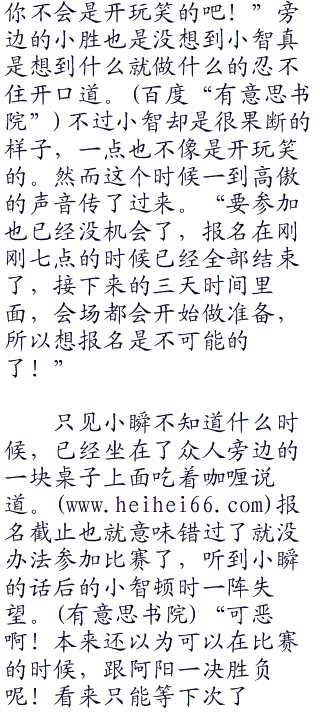 你不会是开玩笑的吧！”旁
边的小胜也是没想到小智真
是想到什么就做什么的忍不
住开口道。(百度“有意思书
院”)不过小智却是很果断的
样子，一点也不像是开玩笑
的。然而这个时候一到高傲
的声音传了过来。“要参加
也已经没机会了，报名在刚
刚七点的时候已经全部结束
了，接下来的三天时间里
面，会场都会开始做准备，
所以想报名是不可能的
了！”
只见小瞬不知道什么时
候，已经坐在了众人旁边的
一块桌子上面吃着咖喱说
道。(www.heihei66.com)报
名截止也就意味错过了就没
办法参加比赛了，听到小瞬
的话后的小智顿时一阵失
望。(有意思书院)“可恶
啊！本来还以为可以在比赛
的时候，跟阿阳一决胜负
呢！看来只能等下次了